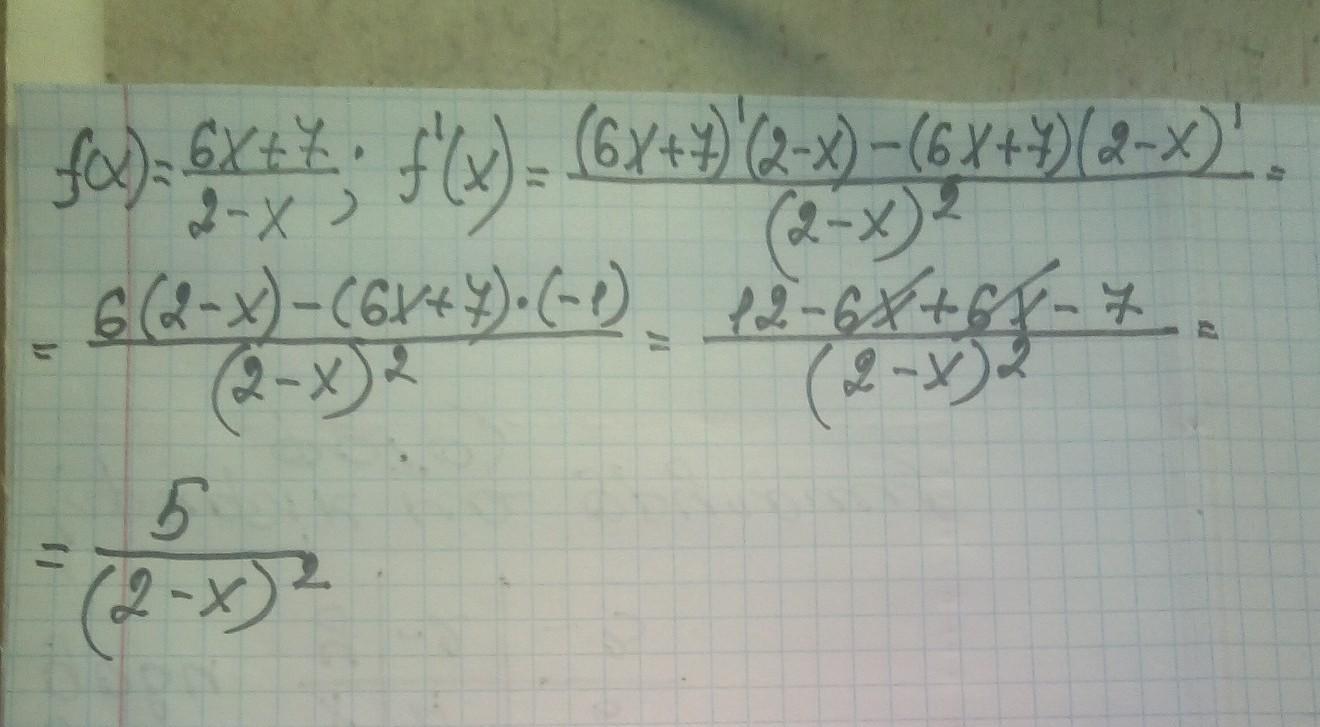 f(x) = (6x+7)/(2-x); f'(x) = ((6x+7)'(2-x) - (6x+7)(2-x)')/(2-x)² =
= (6(2-x) - (6x+7)·(-1))/(2-x)² = (12 - 6x + 6x - 7)/(2-x)² =
= 5/(2-x)²